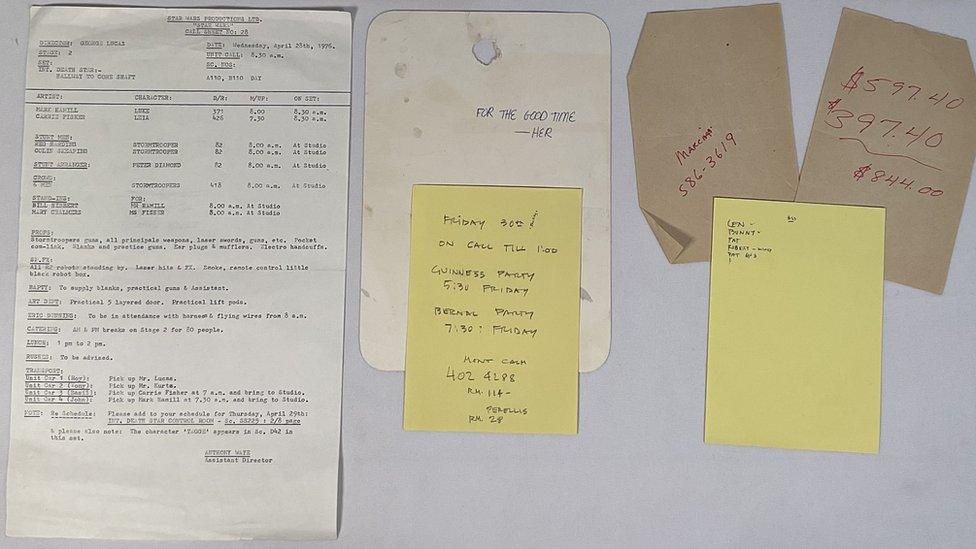 STAR WARS PRODUCTIONS LTD.
"STAR WARS"
CALL SHEET NO: 28
DIRECTOR: GEORGE LUCAS
DATE: Wednesday, April 28th, 1976.
STAGE: 2
UNIT CALL: 8.30 a.m.
SET:
SC. NOS:
INT. DEATH STAR:-
HALLWAY TO CORE SHAFT
A110, B110 DAY
ARTIST: CHARACTER: D/R: M/UP: ON SET:
MARK HAMILL LUKE 371 8.00 8.30 a.m.
CARRIE FISHER LEIA 426 7.30 8.30 a.m.
STUNT MEN:
REG HARDING STORMTROOPER 82 8.00 a.m. At Studio
COLIN SKEAPING STORMTROOPER 82 8.00 a.m. At Studio
STUNT ARRANGER: PETER DIAMOND 82 8.00 a.m. At Studio
CROWD:
6 MEN STORMTROOPERS 418 8.00 a.m. At Studio
STAND-INS: FOR:
BILL MR HAMILL 8.00 a.m. At Studio
MARY CHALMERS MS FISHER 8.00 a.m. At Studio
PROPS:
Stormtroopers guns, all principals weapons, laser swords, guns, etc. Pocket
com-link. Blanks and practice guns. Ear plugs & mufflers. Electro handcuffs.
SP.FX:
All R2 robots standing by. Laser hits & FX. Smoke, remote control little
black robot box.
BAPTY: To supply blanks, practical guns & Assistant.
ART DEPT: Practical 5 layered door. Practical lift pods.
ERIC DUNNING: To be in attendance with harness & flying wires from 8 a.m.
CATERING: AM & PM breaks on Stage 2 for 80 people.
LUNCH: 1 pm to 2 pm.
RUSHES: To be advised.
TRANSPORT:
Unit Car 1 (Roy): Pick up Mr. Lucas.
Unit Car 2 (Tony): Pick up Mr. Kurtz.
Unit Car 3 (Basil): Pick up Carrie Fisher at 7 a.m. and bring to Studio.
Unit Car 4 (John): Pick up Mark Hamill at 7.30 a.m. and bring to Studio.
NOTE: Re Schedule: Please add to your schedule for Thursday, April 29th:
INT. DEATH STAR CONTROL ROOM - Sc. SS225 : 2/8 page
& please also note: The character 'TAGGE' appears in Sc. D42 in
this set.
ANTHONY WAYE
Assistant Director
FOR THE GOOD TIME
— HER
FRIDAY 30th!
ON CALL TILL 1:00
GUINNESS PARTY
5:30 FRIDAY
BERNAL PARTY
7:30: FRIDAY
MONT CALM
402 4288
RM. 114-
PERELLIS
RM. 28
MARCIA:
586-3619
$597.40
$397.40
$844.00
LEN -
BUNNY -
PAT